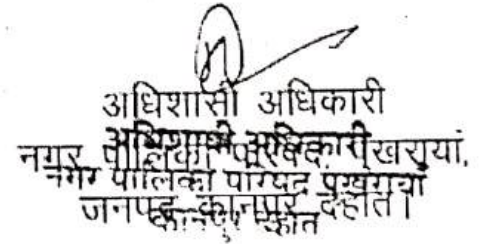 अधिशासी अधिकारी
अधिशाषी अधिकारी
नगर पालिका परिषद, पुखरायां,
नगर पालिका परिषद पुखरायां
जनपद कानपुर देहात।
कानपुर देहात